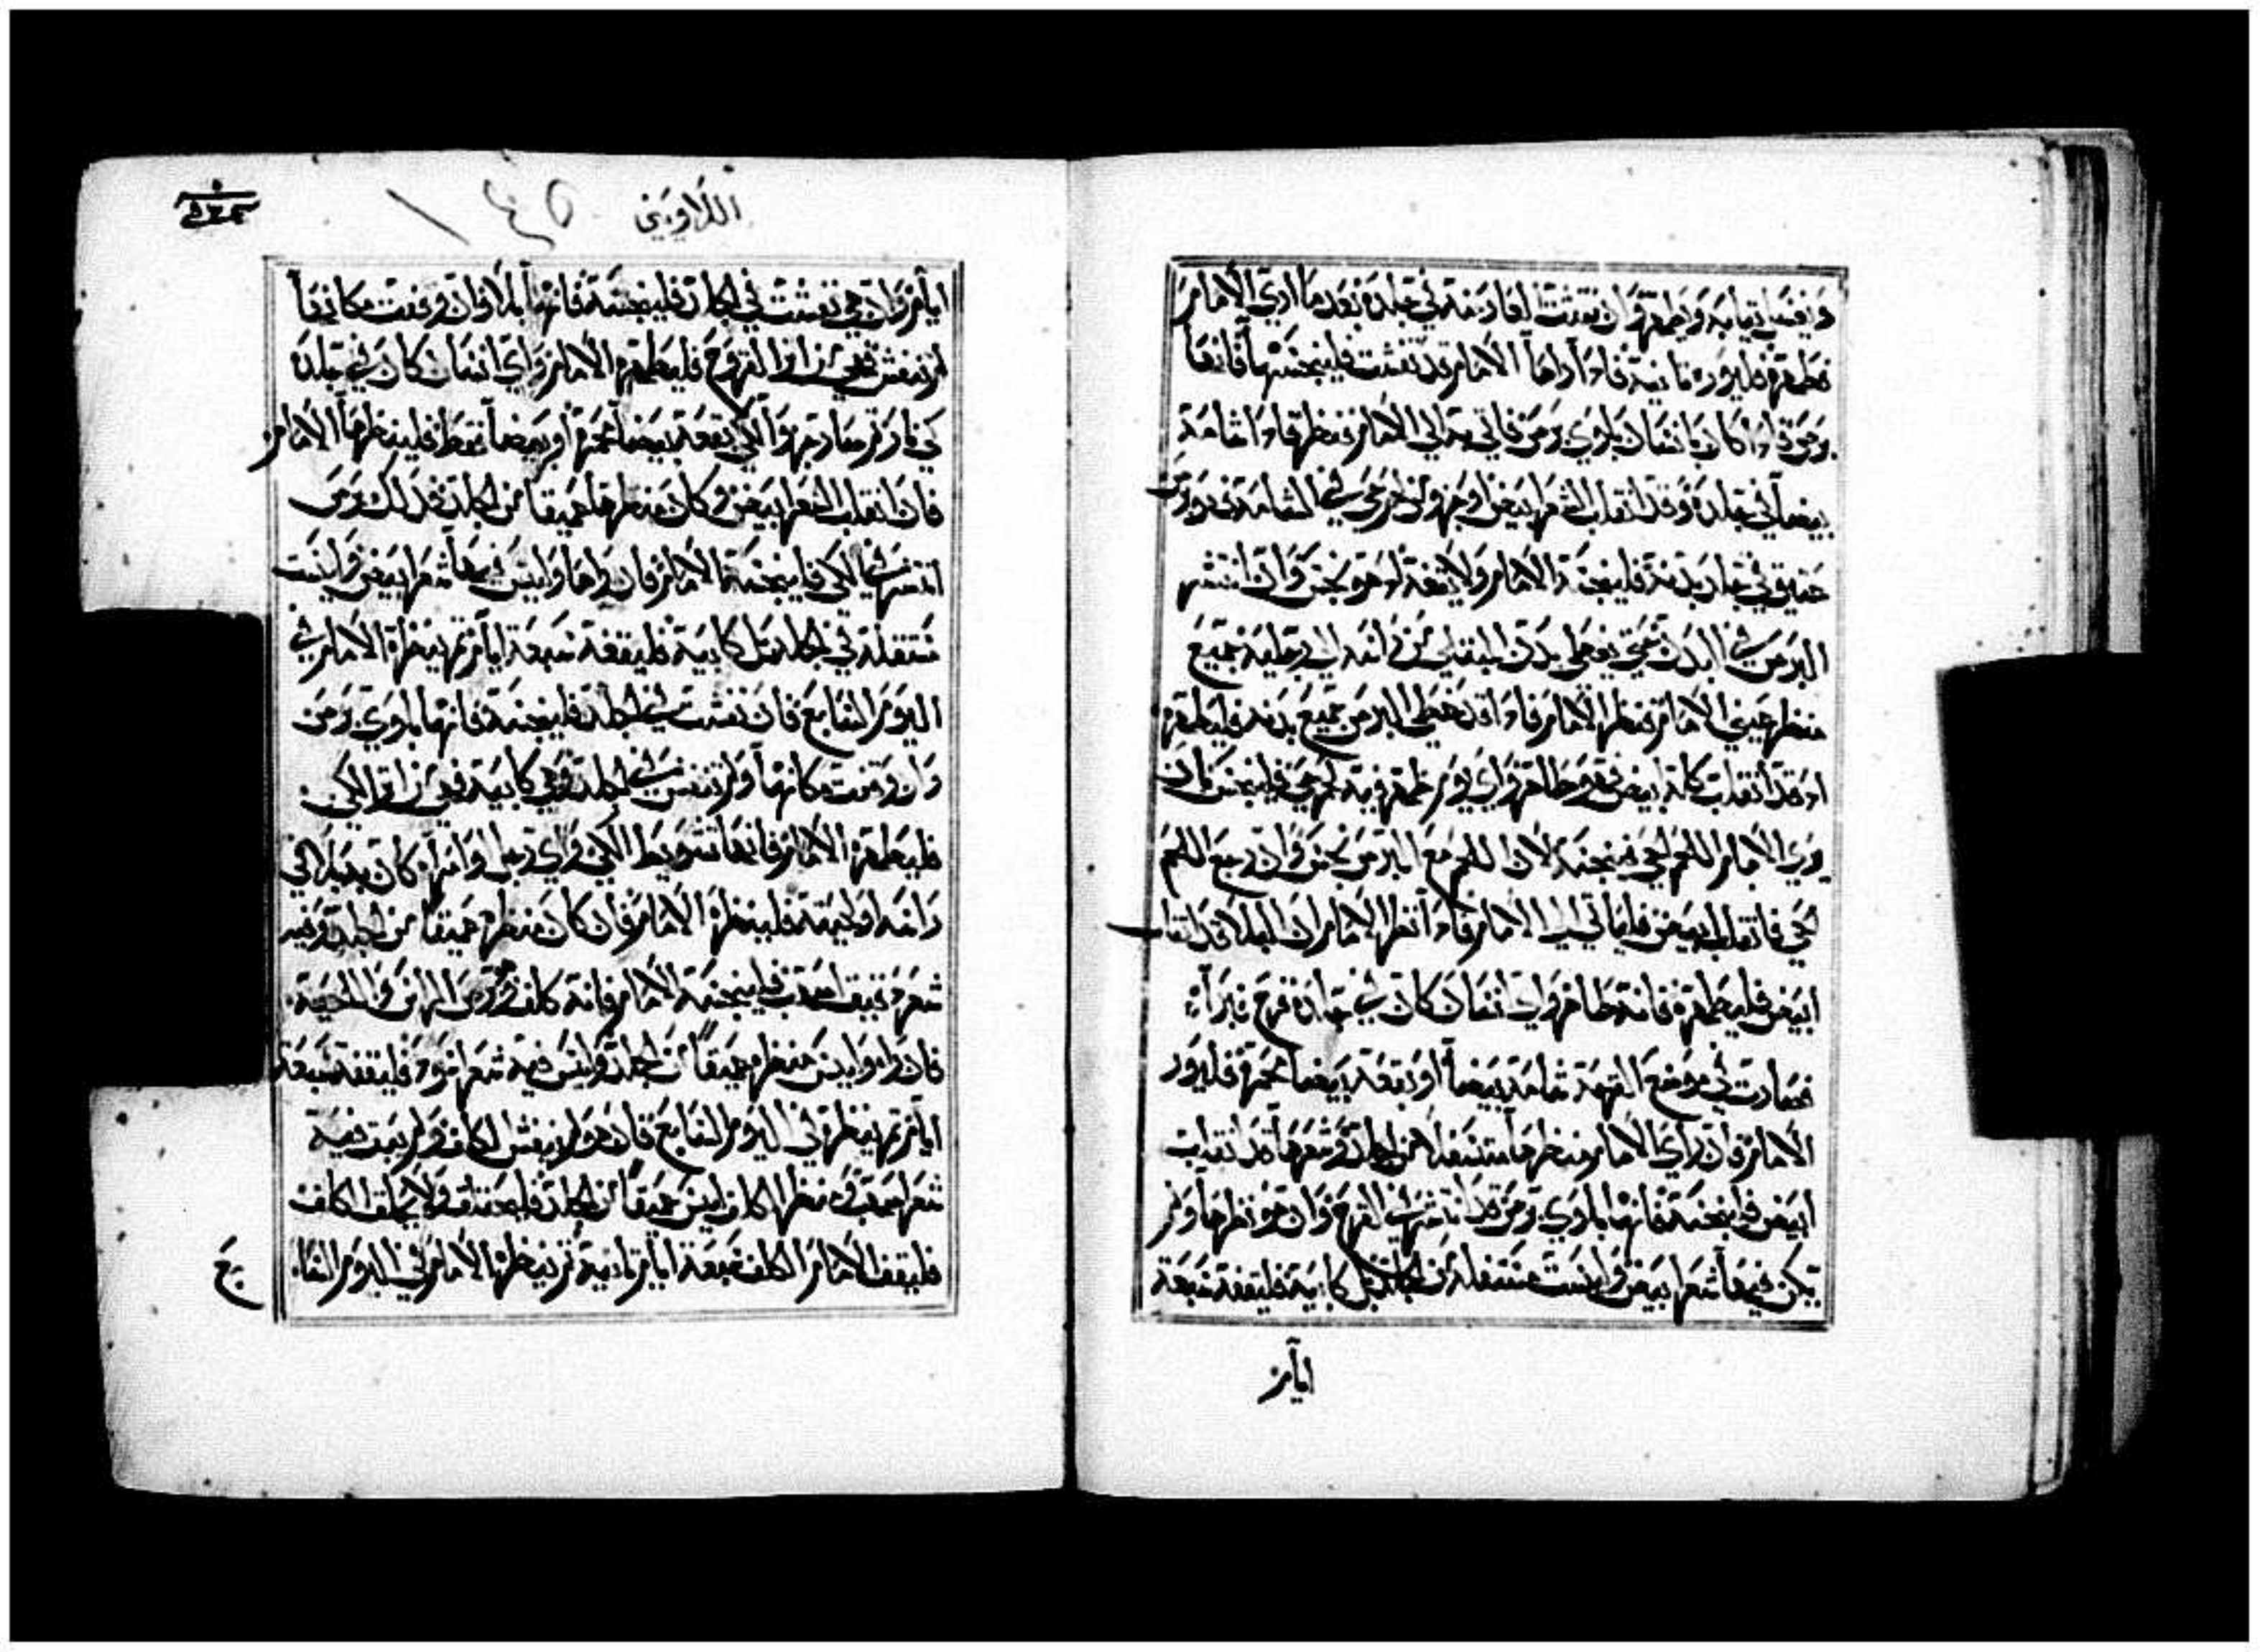 وان تفشت العادية في جلده بعد ما ادي الامام
فطهره فليوره ثانية فاذا راها الامام قد تفشت فلينجسها فانها
برص واذا كان بانسان بلوي برص فاتي به الي الامام فنظر فاذا شامة
بيضا في جلده وقد انقلب الشعر ابيض او جزو لحم حي في الشامة فهو برص
عتيق في جلد بدنه فلينجسه الامام ولا يقفه اذ هو نجس وان انتشر
البرص في البدن حتي يغطي بدن المبتلي من راسه الي رجليه جميع
منظر عيني الامام فنظر الامام فاذا قد غطي البرص جميع بدنه فليطهره
اذ قد انقلب كله ابيض فهو طاهر واي يوم ظهر فيه لحم حي فلينجس فان
وري الامام اللحم الحي فينجسه لان اللحم مع البرص نجس وان رجع اللحم
الحي فانقلب ابيض فليأتي الي الامام فاذا نظر الامام ان البلا قد انقلب
ابيض فليطهره فانه طاهر واي انسان كان في جلده قرح فبرأ
فصارت في موضع القرحة شامة بيضا او بقعة بيضا محمرة فليور
الامام فان رأي الامام منظرها متسفلا من الجلد وشعرها قد انقلب
ابيض فلينجسه فانها بلوي برص قد انتشر في القرح وان هو نظرها ولم
يكن فيها شعر ابيض وليست متسفلة من الجلد بل كابية فليقفه سبعة
ايام
اللاويين
١٤٥
ايام وان هي تفشت في الجلد فلينجسه فانها بلا وان وقفت مكانها
لم تفش فهي اثر القروح فليطهره الامام واي انسان كان في جلده
كي نار وصار اثر الكي بقعة بيضا محمرة او بيضا فقط فلينظرها الامام
فان انقلب الشعر ابيض وكان منظرها عميقا من الجلد فذلك برص
انتشر في الكي فلينجسه الامام فان راها وليس فيها شعر ابيض وليست
متسفلة في الجلد بل كابية فليقفه سبعة ايام ثم ينظره الامام في
اليوم السابع فان تفشت في الجلد فلينجسه فانها بلوي برص
وان وقفت مكانها ولم تفش في الجلد وهي كابية فهي اثر الكي
فليطهره الامام فانها تشويط الكي واي رجل او امراه كان به بلا في
راسه او لحيته فلينظره الامام فان كان منظره عميقا من الجلد وفيه
شعر دقيق اصهب فلينجسه الامام فانه كلف وبرص الراس او اللحية
فان راه وليس منظره عميقا من الجلد وليس فيه شعر اسود فليقفه سبعة
ايام ثم ينظره في اليوم السابع فان هو لم يفش الكلف ولم ينبت فيه
شعر اصهب ومنظر الكلف ليس عميقا من الجلد فليحلق ولا يحلق الكلف
فليقف الامام الكلف سبعة ايام ثانية ثم ينظره الامام في اليوم السا
بع